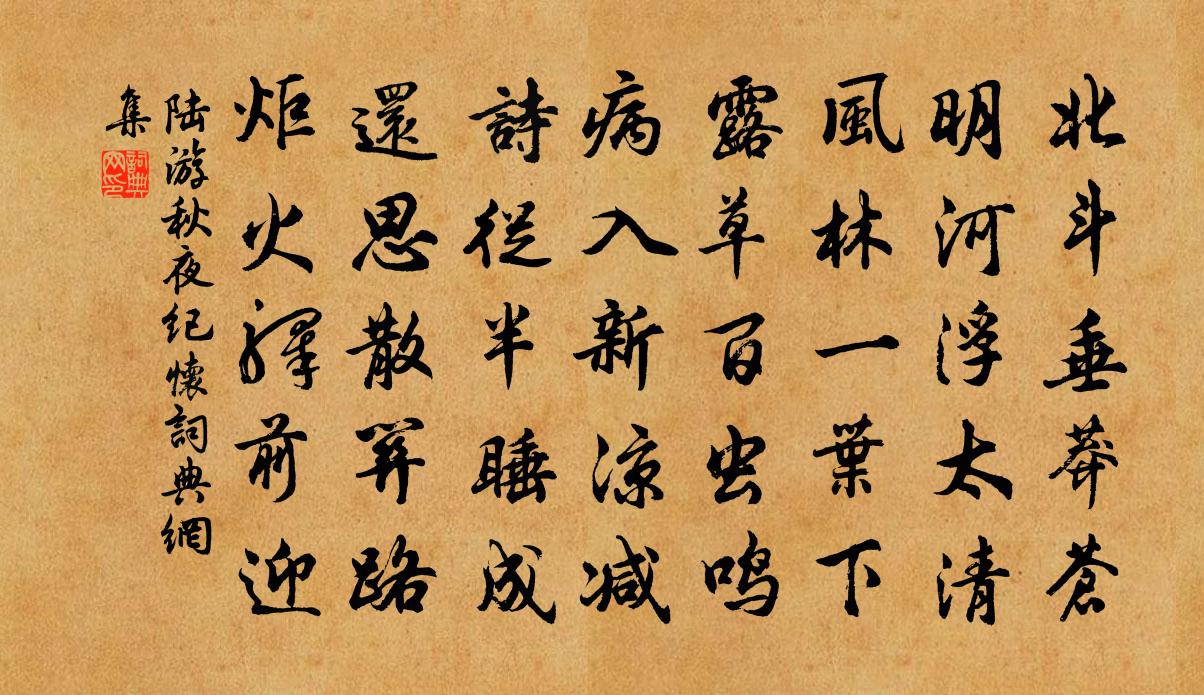 北斗垂莽蒼
明河浮太清
風林一葉下
露草百虫鳴
病入新涼减
詩從半睡成
還思散關路
炬火驛前迎
陸游秋夜纪懷詞典網
集
詞典网印